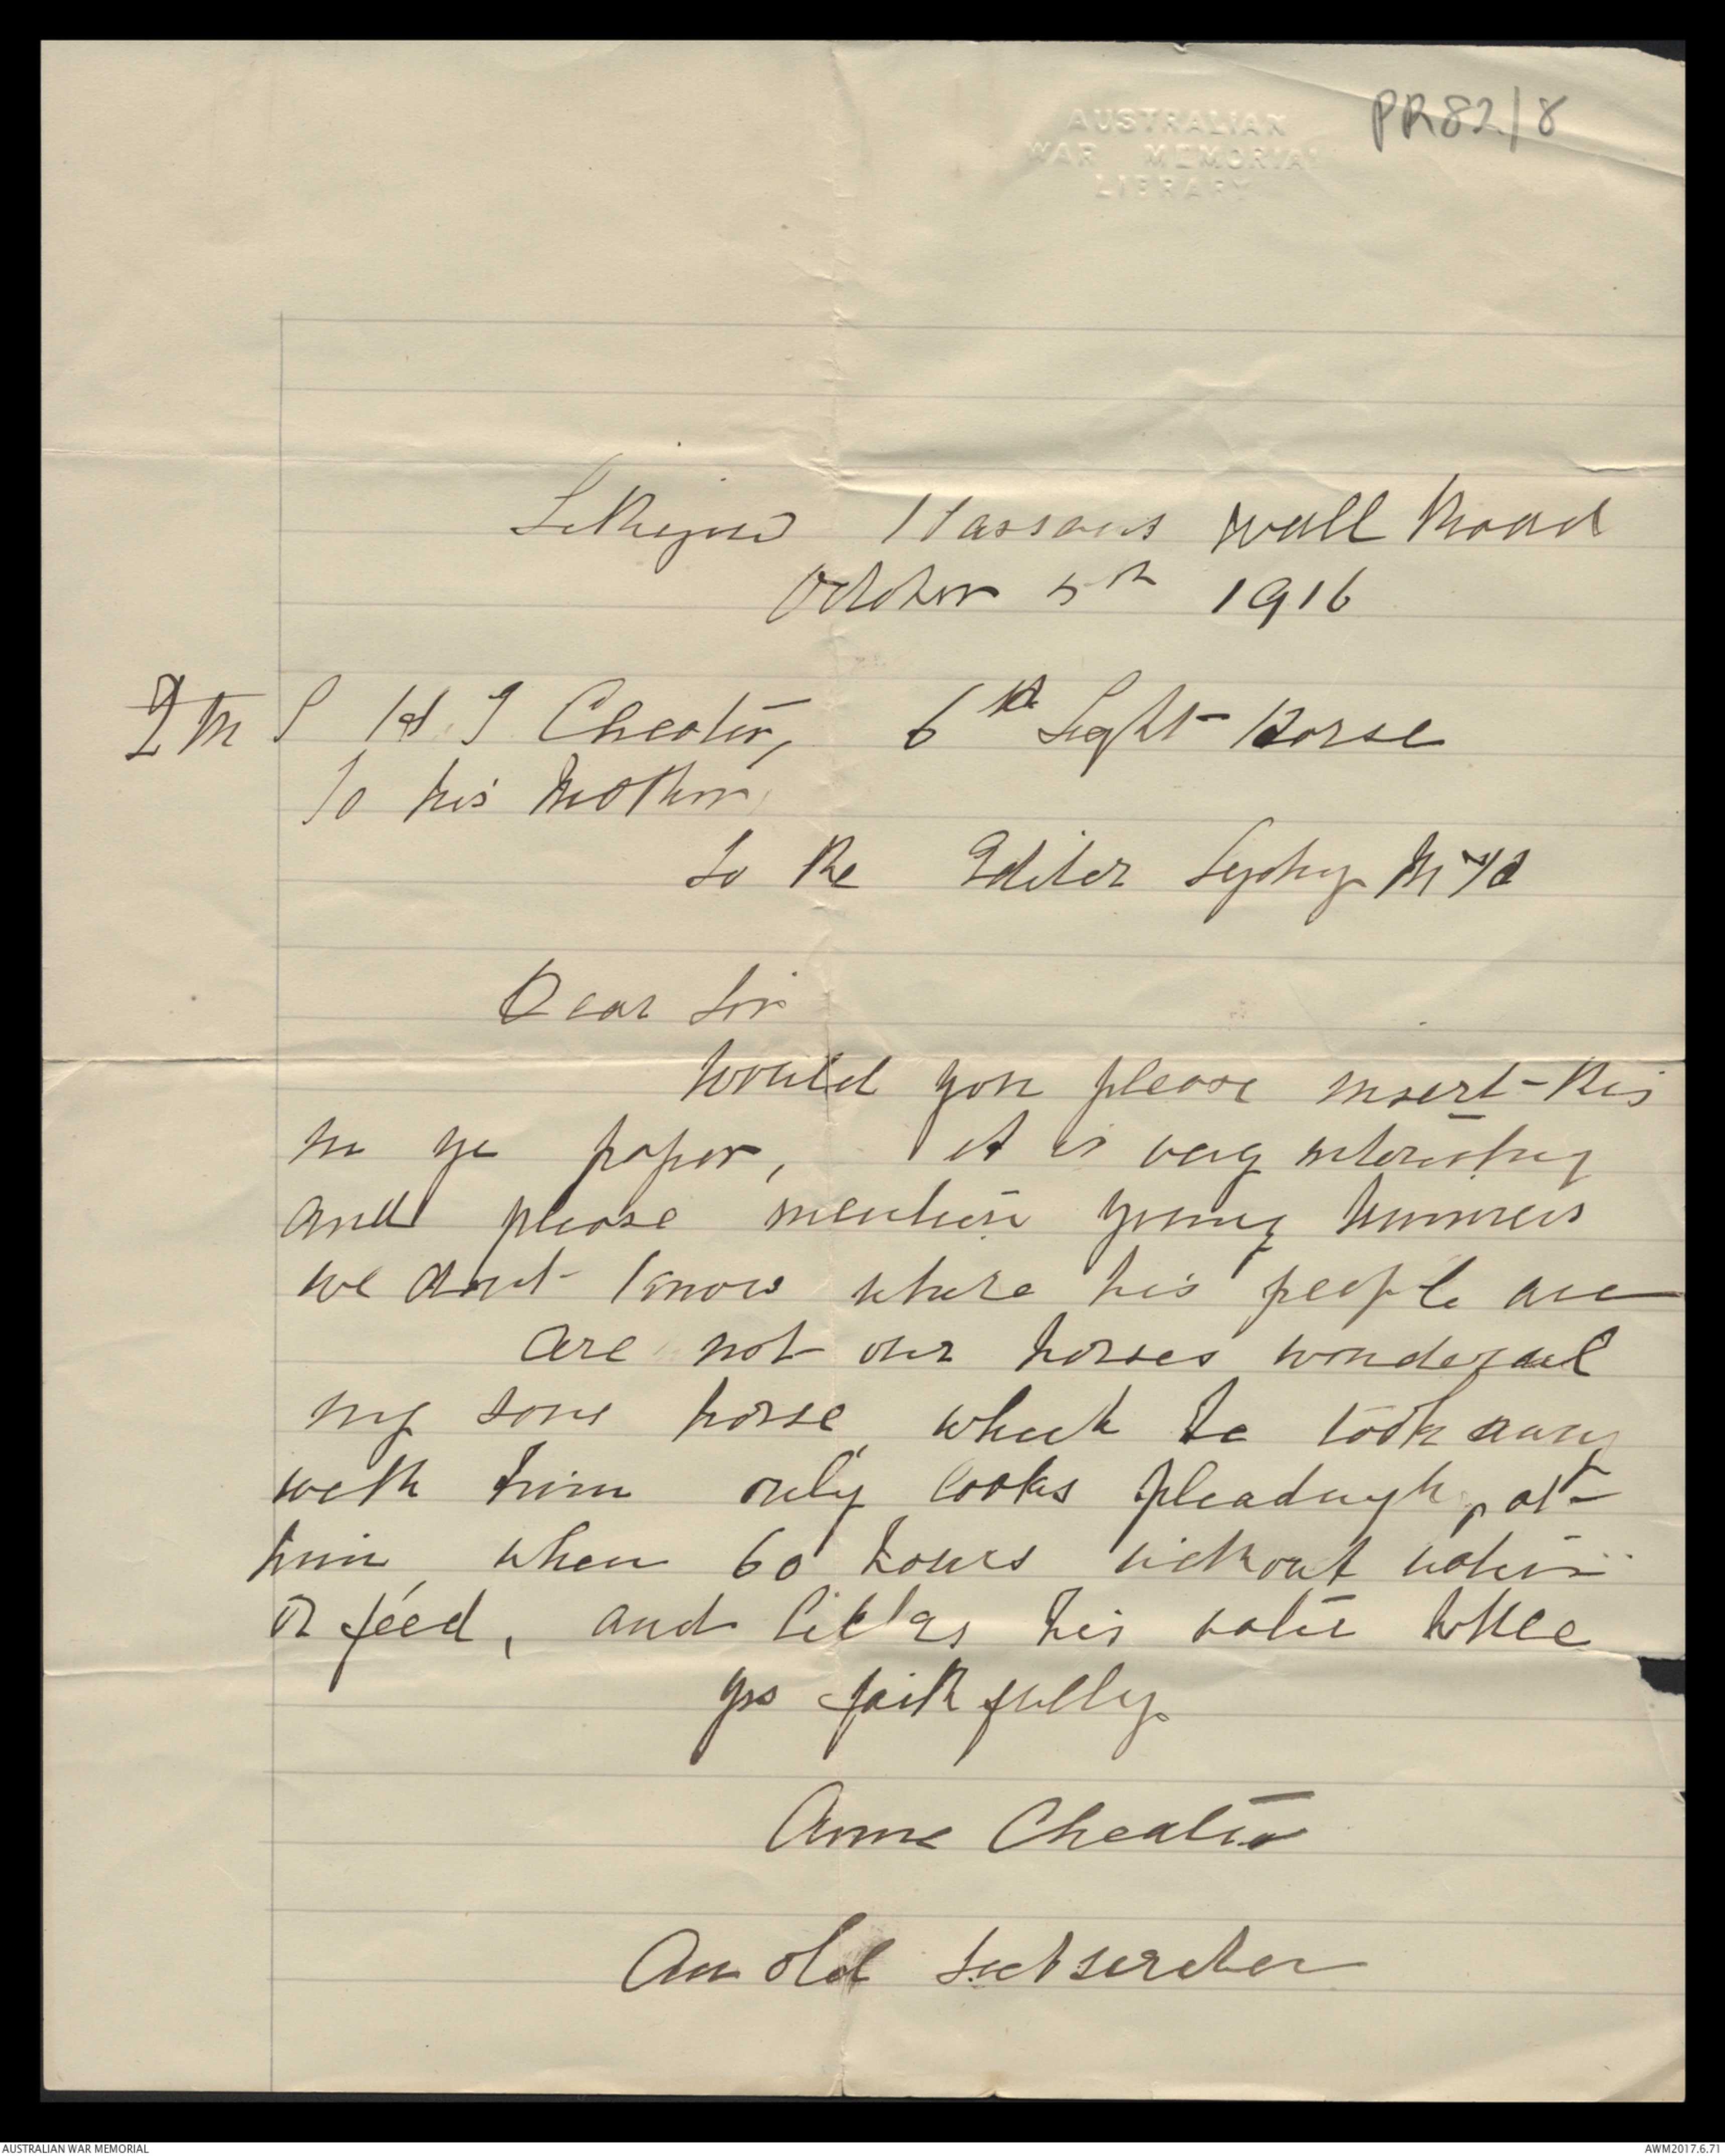 PR82/8
AUSTRALIAN
WAR MEMORIAL
LIBRARY
Hassans Wall Road
October 5th 1916
QMS H. J Cheater, 6th Light Horse
To his Mother,
To the Editor Sydney Mail
Dear Sir
Would you please insert this
in yr paper, it is very interesting
and please mention young
we dont know where his people are
are not our horses wonderful
my sons horse, which he took away
with him only looks pleadingly at
him when 60 hours without water
or feed, and his water bottle
yrs faithfully
Anne Cheater
An old Subscriber
AUSTRALIAN WAR MEMORIAL
AWM2017.6.71